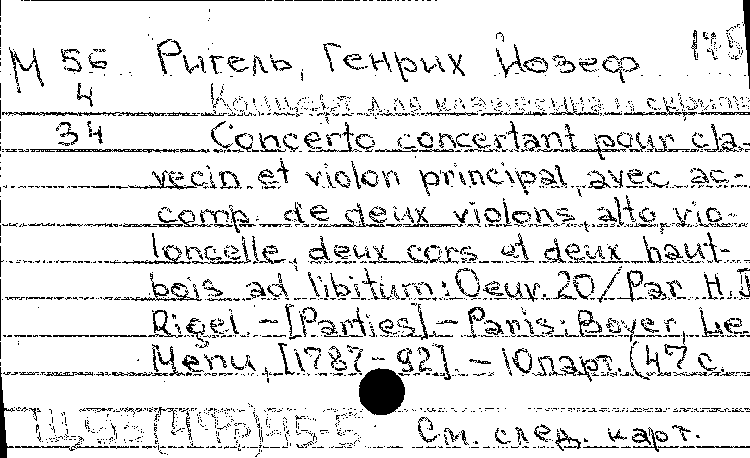 М 56 Ригель, Генрих Йозеф 175
4 Концерт для клавесина и скрипк
34 Concerto concertant pour cla-
vecin et violon principal, avec ac-
comp. de deux violons, alto, vio-
loncelle, deux cors et deux haut-
bois ad libitum: Oeuv. 20/Par H.J
Rigel. – [Parties]. – Paris: Boyer, Le
Menu, [1787-92]. – 10 парт. (47 с.
45-5 См. след. карт.